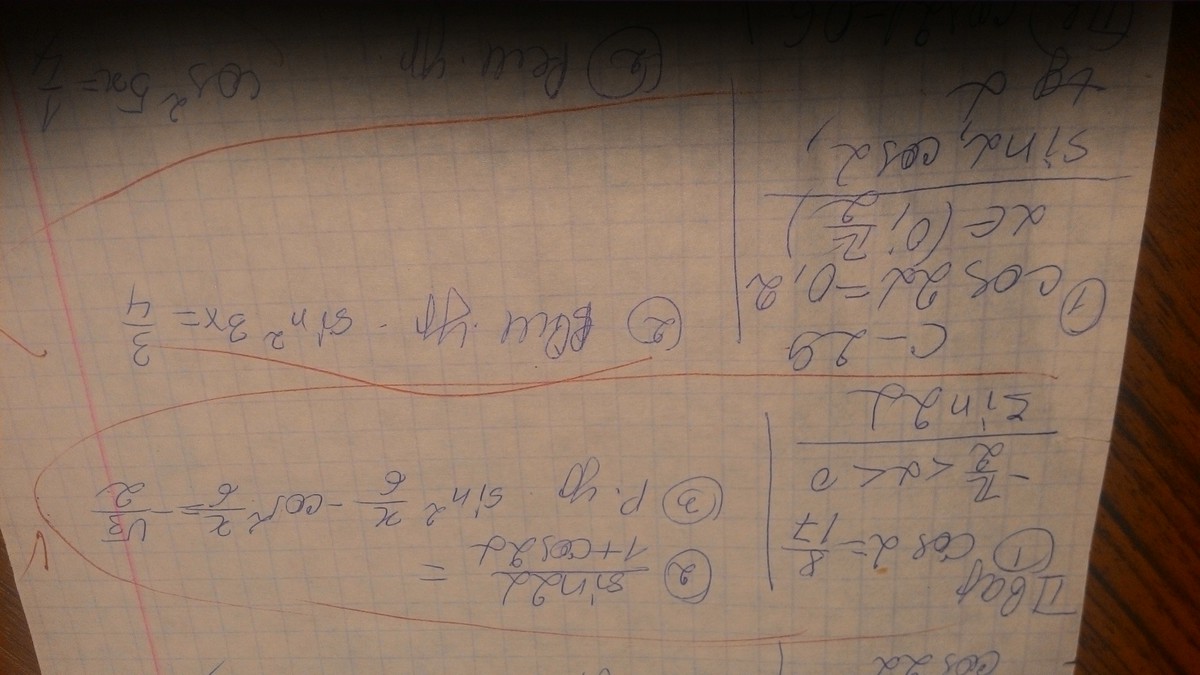 cos2α
II Вар
① cos α = 8/17
-π/2 < α < 0
sin2α
② sin2α / 1+cos2α =
③ Р. ур sin² x/6 - cos² x/6 = -√3/2
С-29
① cos2α = 0,2
α ∈ (0; π/2)
sinα, cosα,
tg α
② Реши. ур. sin² 3x = 3/4
② Реши. ур. cos² 5x = 1/4